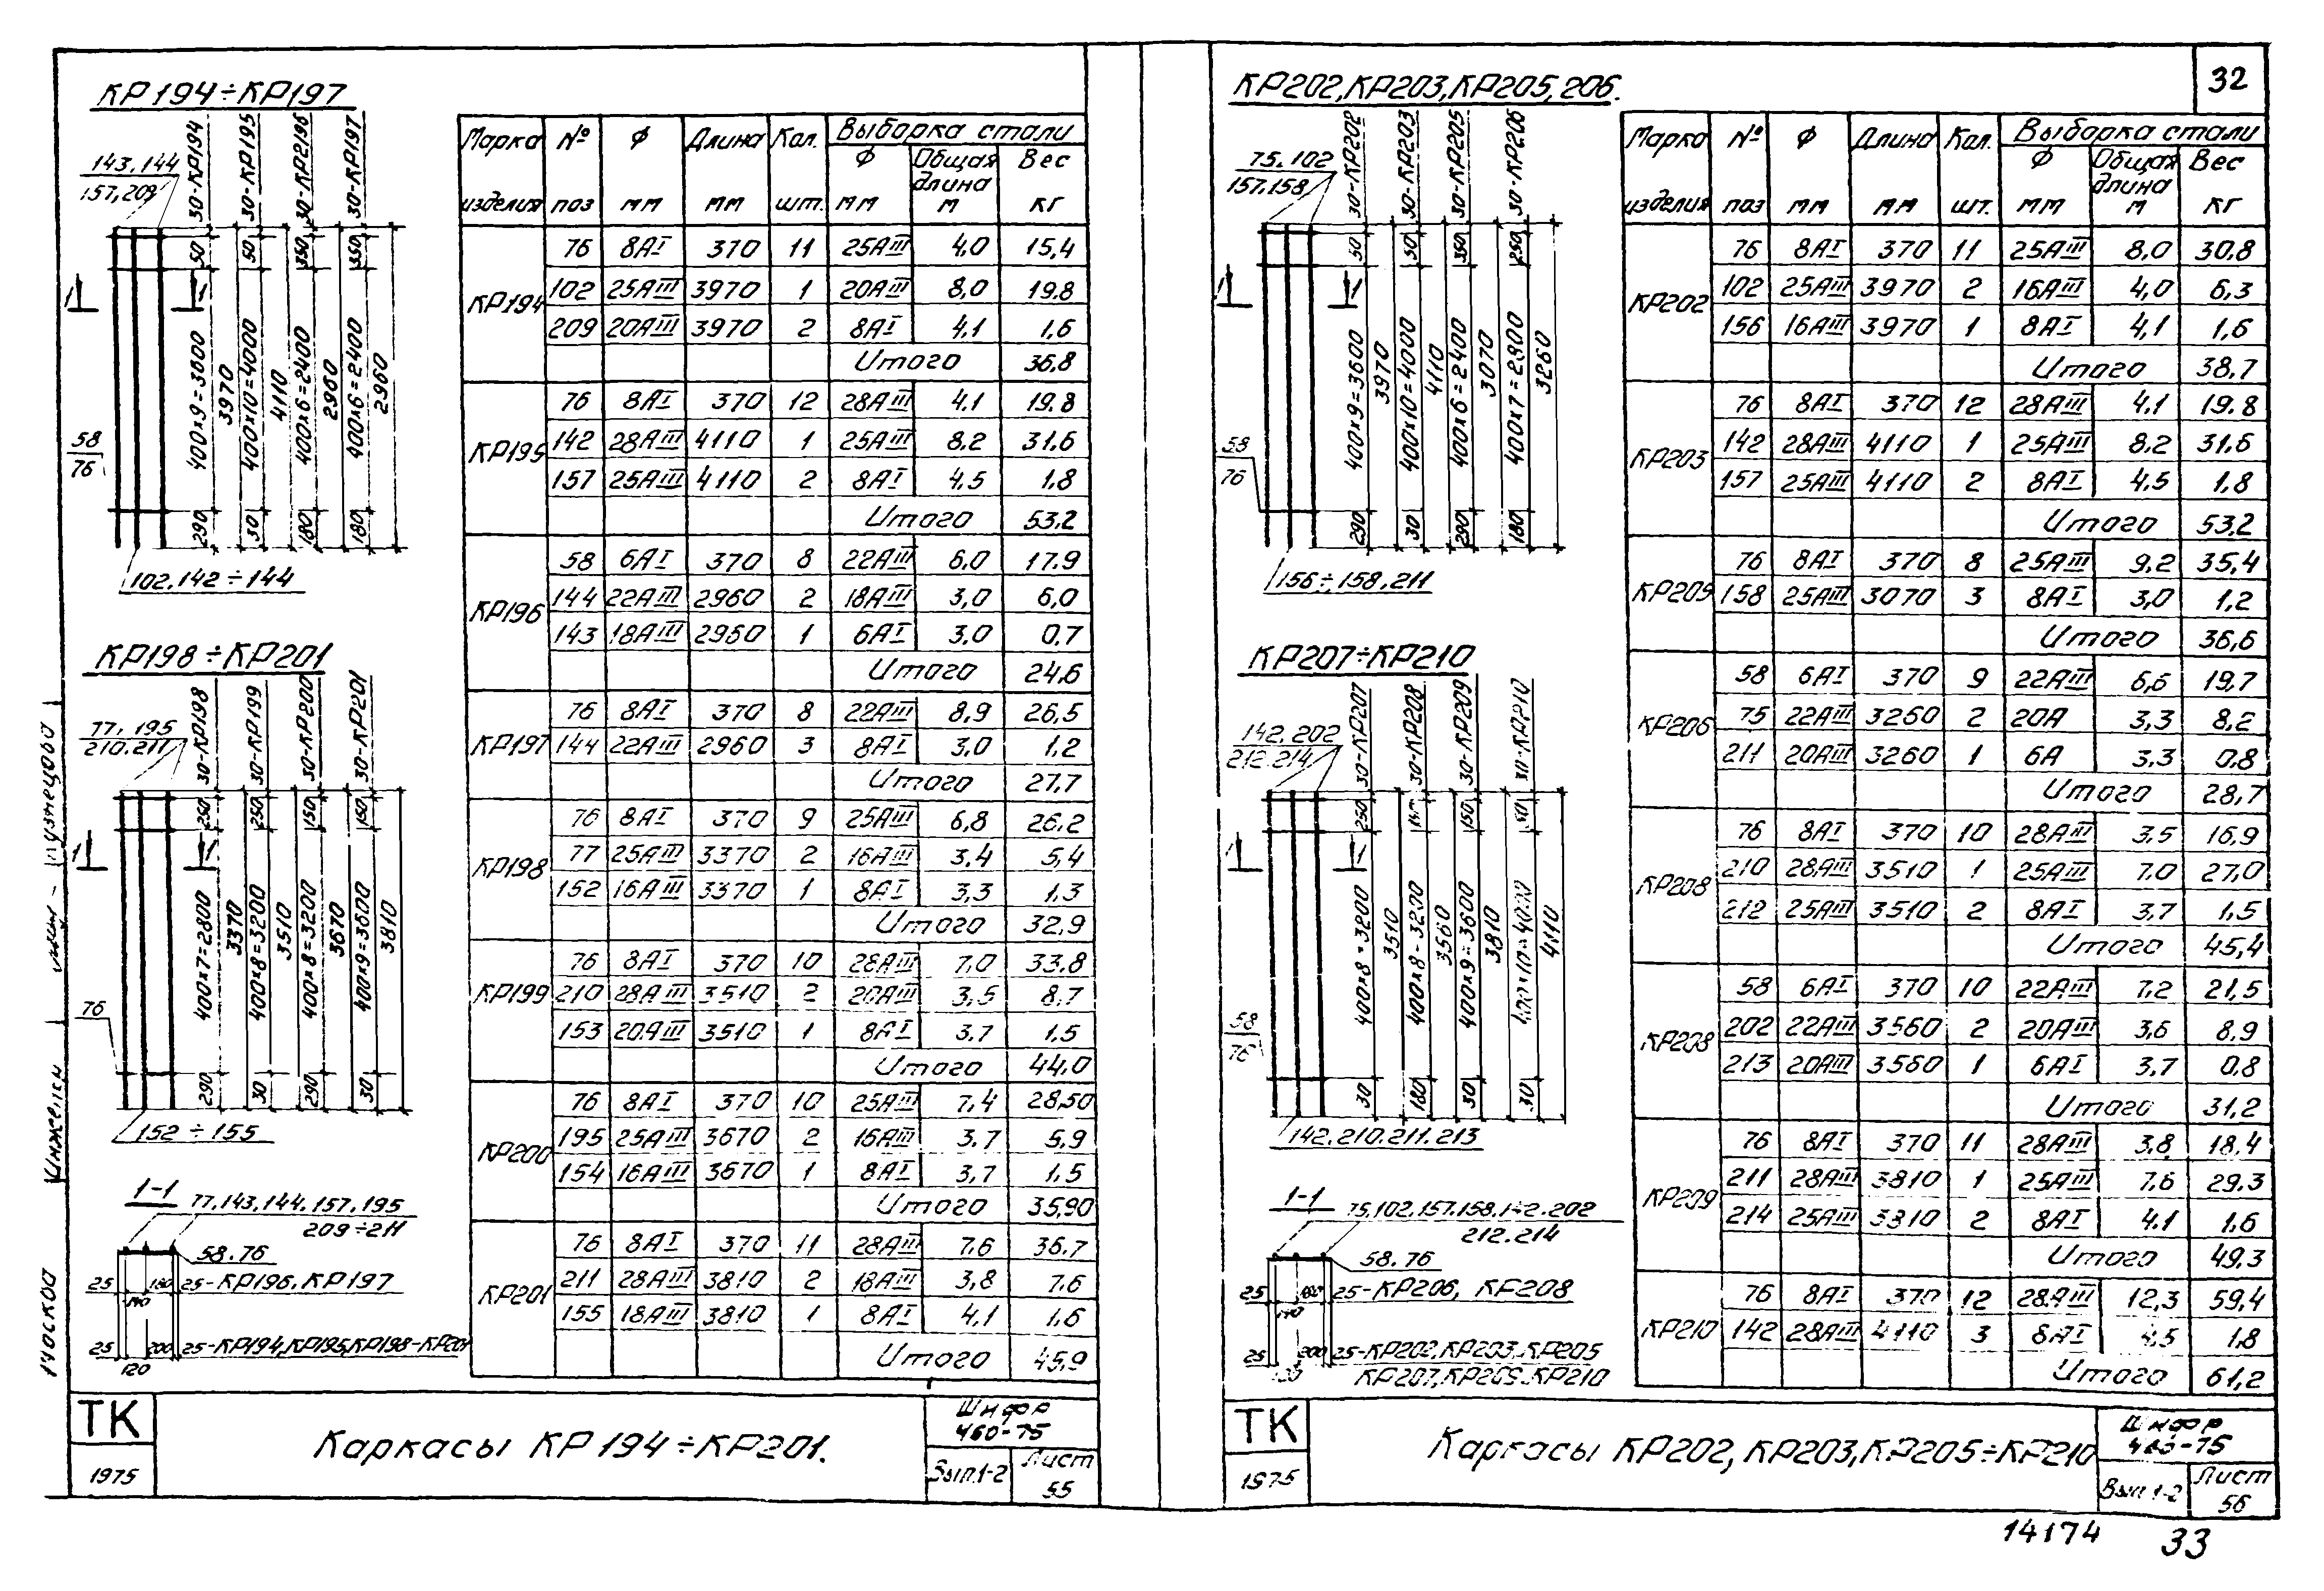 32
КР194÷КР197
143.144
157,209
30-КР194
30-КР195
30-КР2196
30-КР197
50
50
350
350
1
1
400х9=3600
3970
400х10=4000
4110
400х6=2400
2960
400х6=2400
2960
58
76
290
30
180
180
102.142÷144
КР198÷КР201
77.195
210.211
30-КР198
30-КР199
30-КР200
30-КР201
250
250
150
150
1
1
400х7=2800
3370
400х8=3200
3510
400х8=3200
3670
400х9=3600
3810
76
290
30
290
30
152÷155
1-1
77,143,144.157.195
209÷211
58.76
25 140 180 25-КР196.КР197
25 120 200 25-КР194,КР195,КР198-КР201
Марка изделия № поз Ф мм Длина мм Кол. шт. Выборка стали
Ф мм Общая длина м Вес кг
КР194
76 8АI 370 11 25АIII 4,0 15,4
102 25АIII 3970 1 20АIII 8,0 19.8
209 20АIII 3970 2 8АI 4.1 1,6
Итого 36,8
КР195
76 8АI 370 12 28АIII 4.1 19.8
142 28АIII 4110 1 25АIII 8.2 31.6
157 25АIII 4110 2 8АI 4.5 1.8
Итого 53,2
КР196
58 6АI 370 8 22АIII 6.0 17.9
144 22АIII 2960 2 18АIII 3,0 6,0
143 18АIII 2960 1 6АI 3.0 0.7
Итого 24,6
КР197
76 8АI 370 8 22АIII 8.9 26,5
144 22АIII 2960 3 8АI 3.0 1.2
Итого 27.7
КР198
76 8АI 370 9 25АIII 6,8 26.2
77 25АIII 3370 2 16АIII 3.4 5,4
152 16АIII 3370 1 8АI 3.3 1.3
Итого 32.9
КР199
76 8АI 370 10 28АIII 7.0 33.8
210 28АIII 3510 2 20АIII 3.5 8,7
153 20АIII 3510 1 8АI 3.7 1.5
Итого 44.0
КР200
76 8АI 370 10 25АIII 7,4 28,50
195 25АIII 3670 2 16АIII 3.7 5.9
154 16АIII 3670 1 8АI 3,7 1.5
Итого 35,90
КР201
76 8АI 370 11 28АIII 7.6 36.7
211 28АIII 3810 2 18АIII 3,8 7.6
155 18АIII 3810 1 8АI 4.1 1.6
Итого 45.9
ТК
1975
Каркасы КР194÷КР201.
Шифр
460-75
Вып.1-2
Лист
55
КР202,КР203,КР205,206.
75.102
157.158
30-КР202
30-КР203
30-КР205
30-КР206
50
50
350
250
1
1
400х9=3600
3970
400х10=4000
4110
400х6=2400
3070
400х7=2800
3260
58
76
290
30
290
180
156÷158.211
КР207÷КР210
142.202
212.214
30-КР207
30-КР208
30-КР209
30-КР210
250
150
150
50
1
1
400х8=3200
3510
400х8-3200
3560
400х9=3600
3810
400х10=4000
4110
58
76
30
180
30
30
142.210.211.213
1-1
75,102.157.158.142.202
212.214
58.76
25 140 25-КР206, КР208
25 200 25-КР202,КР203.КР205
КР207,КР209.КР210
Марка изделия № поз Ф мм Длина мм Кол. шт. Выборка стали
Ф мм Общая длина м Вес кг
КР202
76 8АI 370 11 25АIII 8,0 30.8
102 25АIII 3970 2 16АIII 4,0 6,3
156 16АIII 3970 1 8АI 4,1 1,6
Итого 38,7
КР203
76 8АI 370 12 28АIII 4.1 19.8
142 28АIII 4110 1 25АIII 8.2 31.6
157 25АIII 4110 2 8АI 4.5 1.8
Итого 53,2
КР209
76 8АI 370 8 25АIII 9.2 35,4
158 25АIII 3070 3 8АI 3,0 1,2
Итого 36,6
КР206
58 6АI 370 9 22АIII 6,6 19.7
75 22АIII 3260 2 20А 3,3 8,2
211 20АIII 3260 1 6А 3.3 0.8
Итого 28,7
КР208
76 8АI 370 10 28АIII 3.5 16,9
210 28АIII 3510 1 25АIII 7.0 27,0
212 25АIII 3510 2 8АI 3,7 1.5
Итого 45,4
КР208
58 6АI 370 10 22АIII 7.2 21,5
202 22АIII 3560 2 20АIII 3,6 8,9
213 20АIII 3560 1 6АI 3,7 0,8
Итого 31,2
КР209
76 8АI 370 11 28АIII 3.8 18.4
211 28АIII 3810 1 25АIII 7.6 29.3
214 25АIII 3810 2 8АI 4.1 1.6
Итого 49.3
КР210
76 8АI 370 12 28АIII 12,3 59,4
142 28АIII 4110 3 8АI 4,5 1,8
Итого 61,2
ТК
1975
Каркасы КР202, КР203,КР205÷КР210
Шифр
Вып 1-2
Лист
56
14174
33